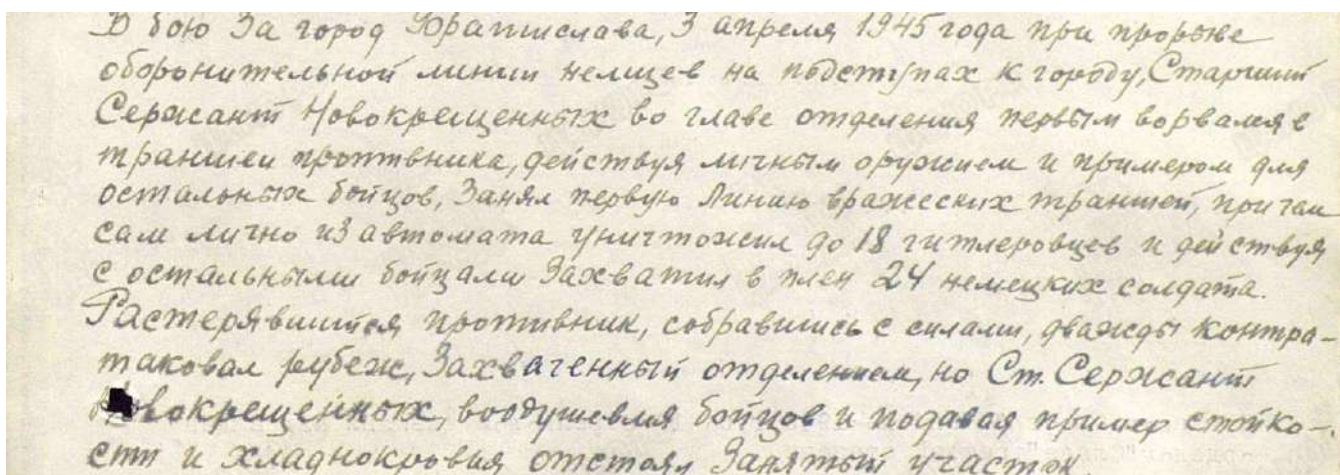 В бою За город Братислава, 3 апреля 1945 года при прорыве
оборонительной линии немцев на подступах к городу, Старший
Сержант Новокрещенных во главе отделения первым ворвался в
траншеи противника, действуя личным оружием и примером для
остальных бойцов, Занял первую Линию вражеских траншей, причем
сам лично из автомата уничтожил до 18 гитлеровцев и действуя
с остальными бойцами Захватил в плен 24 немецких солдата.
Растерявшийся противник, собравшись с силами, дважды контра-
таковал рубеж, Захваченный отделением, но Ст. Сержант
вокрещенных, воодушевляя бойцов и подавая пример стойко-
сти и хладнокровия отстоял Занятый участок.